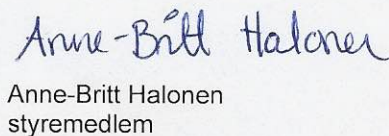 Anne-Britt Halonen
Anne-Britt Halonen
styremedlem